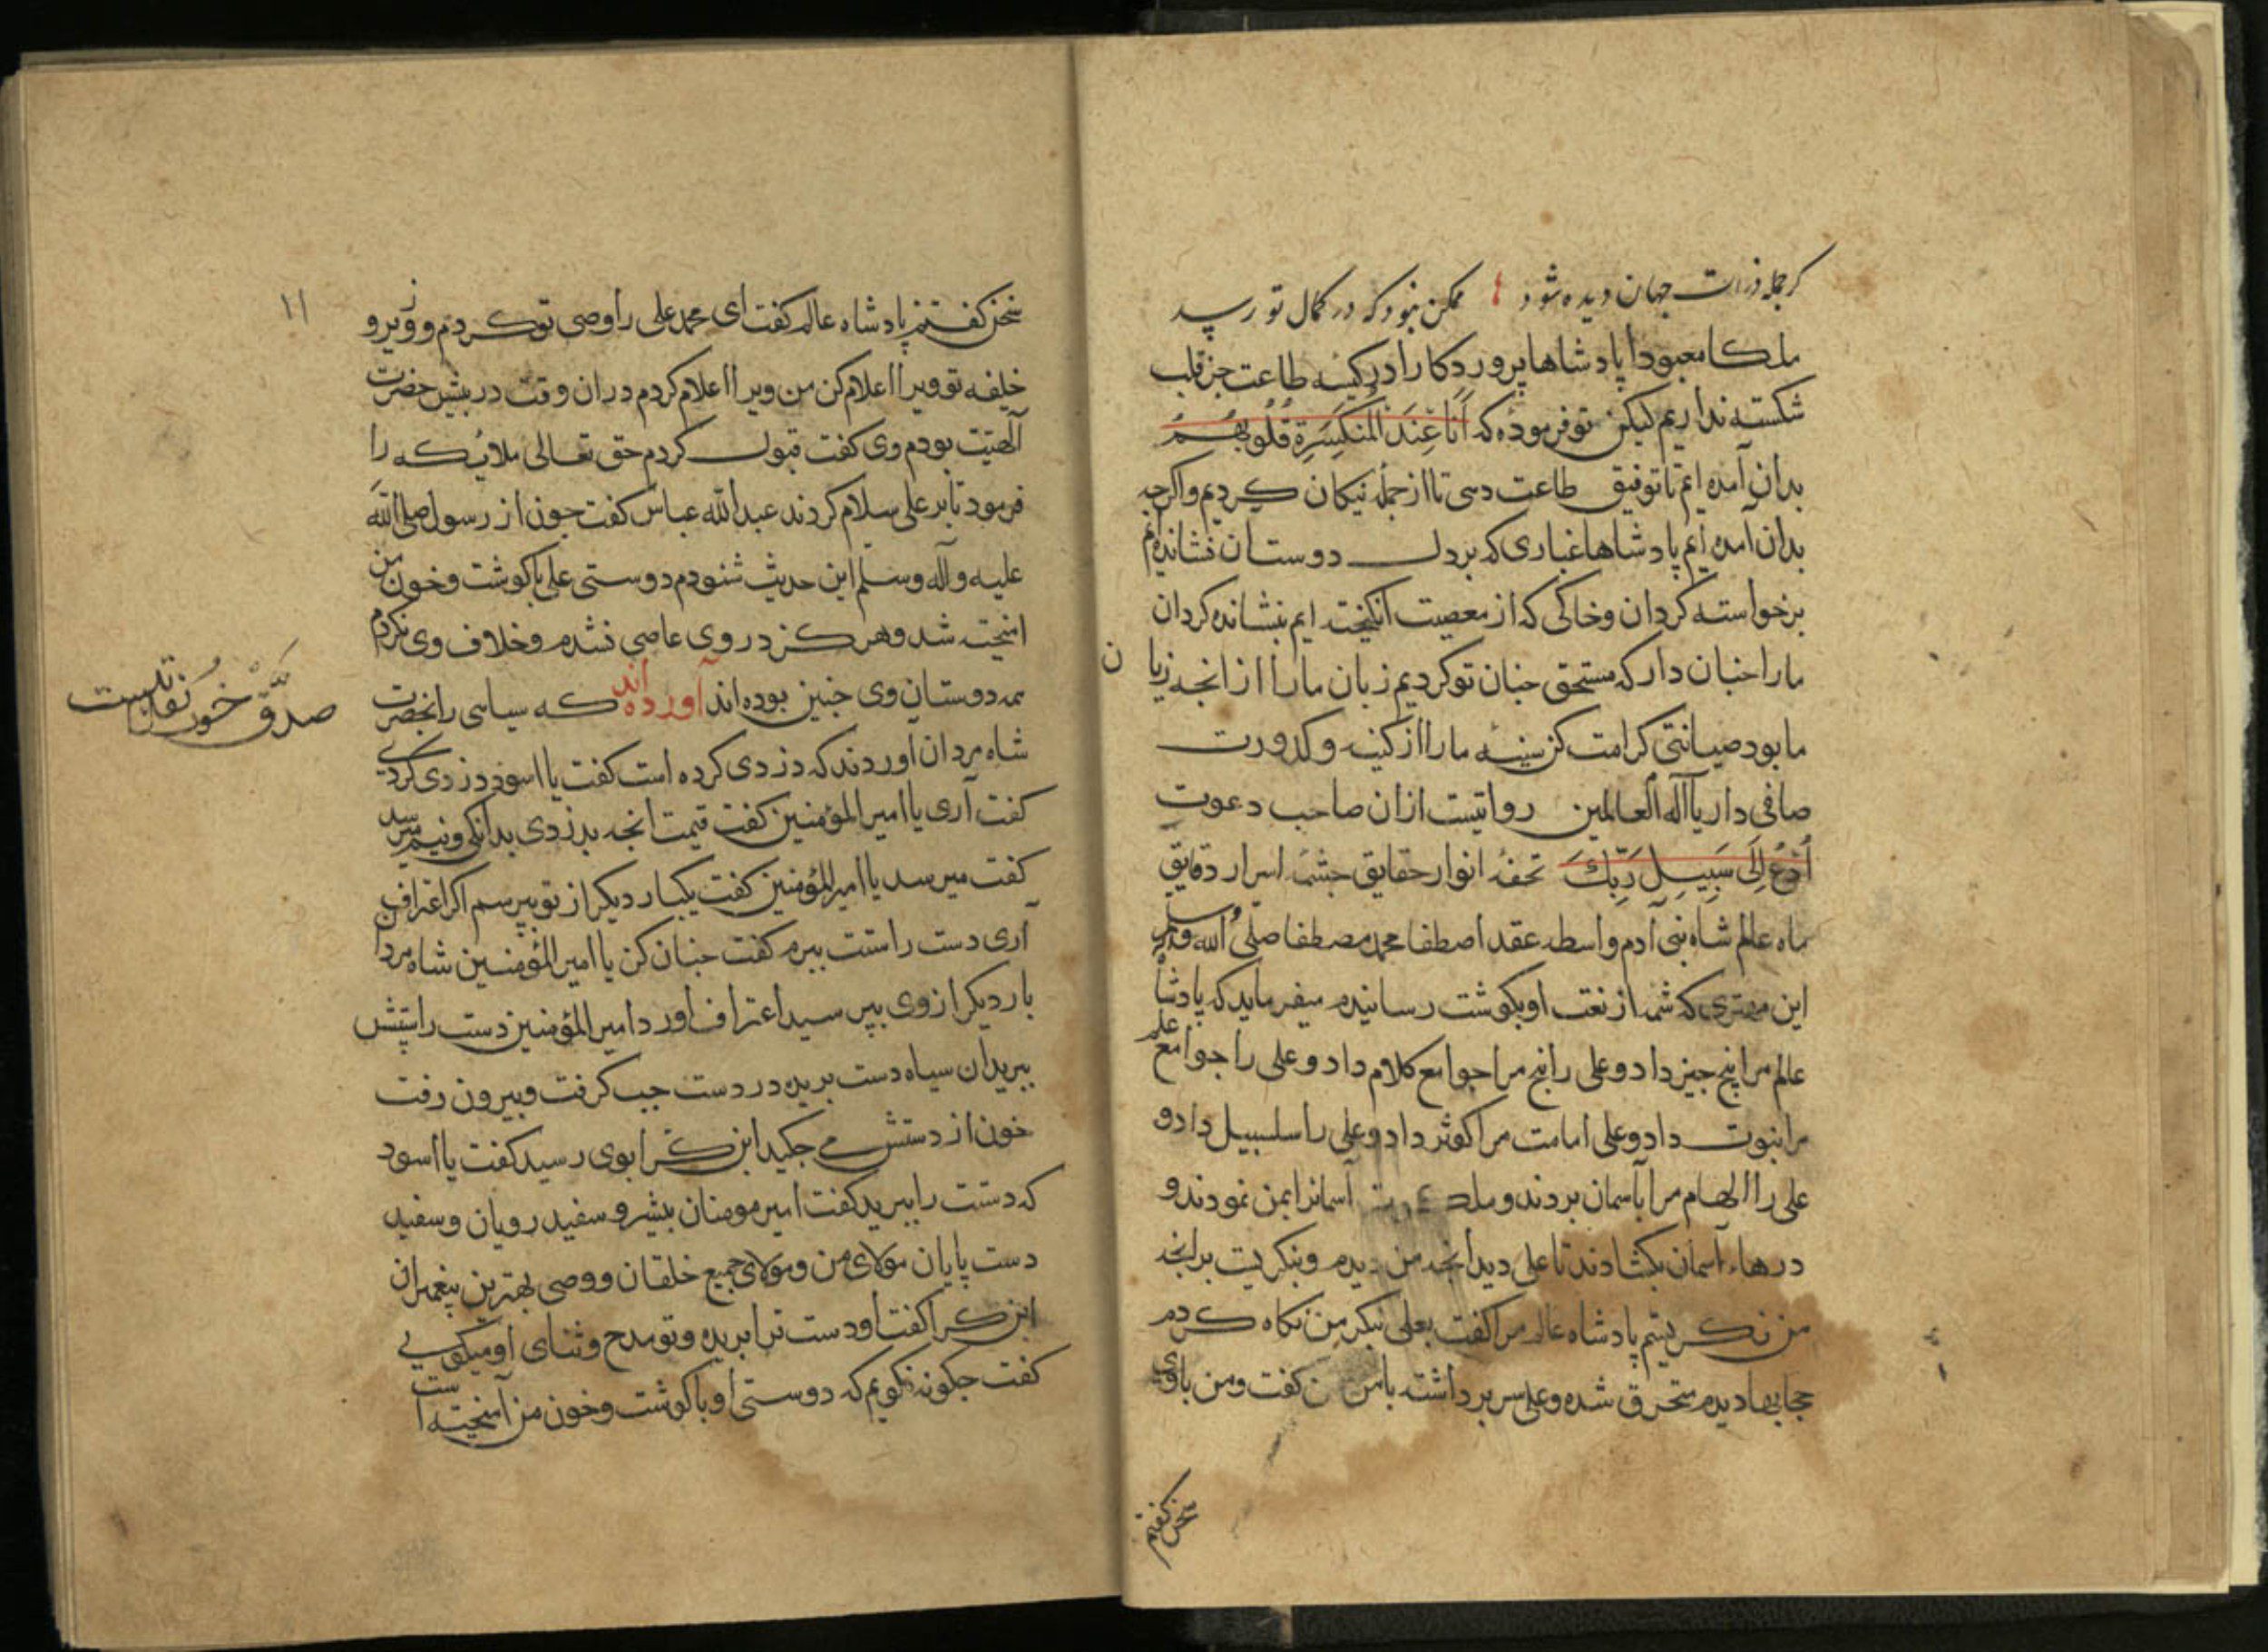 گر جمله ذرات جهان دیده شود ممکن نبود که در کمال تو رسد
ملکا معبودا پادشاها پروردکارا در کیسه طاعت جز قلب
شکسته نداریم لیکن تو فرموده که أَنَا عِنْدَ الْمُنْكَسِرَةِ قُلُوبُهُمْ
بدان آمده ایم تا توفیق طاعت دهی تا از جمله نیکان کردیم واکرچه
بدان آمده ایم پادشاها غباری که بر دل دوستان نشانده ایم
برخواسته کردان وخاکی که از معصیت انکیخته ایم بنشانده کردان
ما را جنان دار که مستحق جنان تو کردیم زبان ما را از انجه زیان
ما بود صیانتی کرامت کن سینه ما را از کینه وکدورت
صافی دار یا اله العالمین روایتست ازان صاحب دعوت
أُدْعُ إِلَى سَبِيلِ رَبِّكَ تحفه انوار حقایق جشمه اسرار دقایق
ماه عالم شاه بنی آدم واسطه عقد اصطفا محمد مصطفا صلی الله علیه وسلم
این مهتری که شمه از نعت او بکوشت رسانیدم میفرماید که پادشاه
عالم مرا پنج جیز داد وعلی را پنج مرا جوامع کلام داد وعلی را جوامع علم
مرا نبوت داد وعلی امامت مرا کوثر داد وعلی را سلسبیل داد و
علی را الهام مرا بآسمان بردند و آسمانرا بمن نمودند و
درهاء آسمان بکشادند تا علی دید انجه من دیدم وبنکریست بر انجه
من نکریستم پادشاه عالم مرا کفت بعلی نیکر من نکاه کردم
حجابها دیدم متحرق شده وعلی سر برداشته با من کفت ومن با وی
سخن کفتم
سخن کفتم پادشاه عالم کفت ای محمد علی را وصی تو کردم ووزیر و
۱۱
خلیفه تو ویرا اعلام کن من ویرا اعلام کردم در ان وقت در پیش حضرت
الهیت بودم وی کفت قبول کردم حق تعالی ملایکه را
فرمود تا بر علی سلام کردند عبدالله عباس کفت جون از رسول صلی الله
علیه وآله وسلم این حدیث شنودم دوستی علی با کوشت وخون من
امیخته شد وهرکز در وی عاصی نشدم وخلاف وی نکردم
همه دوستان وی جنین بوده اند آورده اند که سیاهی را بحضرت
شاه مردان آوردند که دزدی کرده است کفت یا اسود دزدی کردی
کفت آری یا امیر المؤمنین کفت قیمت انجه بدزدی بدانکی ونیم میرسد
کفت میرسد یا امیر المؤمنین کفت یکبار دیکر از تو بپرسم اکر اعتراف
آری دست راستت ببرم کفت جنان کن یا امیر المؤمنین شاه مردان
بار دیکر از وی بپرسید اعتراف اورد امیر المؤمنین دست راستش
ببرید ان سیاه دست بریده در دست جب کرفت وبیرون رفت
خون از دستش می جکید ابن کرا بوی رسید کفت یا اسود
که دستت را ببرید کفت امیر مومنان پیشرو سفید رویان وسفید
دست پایان مولای من ومولای جمیع خلقان ووصی بهترین پیغمبران
ابن کرا کفت او دست ترا بریده وتو مدح وثنای او میکویی
کفت جکونه نکویم که دوستی او با کوشت وخون من آمیخته است